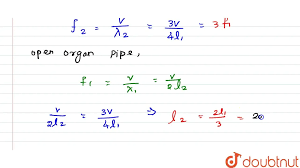 f₂ = v/λ₂ = 3v/4l₁ = 3f₁
open organ pipe,
f₁ = v/λ₁ = v/2l₂
v/2l₂ = 3v/4l₁ ⇒ l₂ = 2l₁/3 = 2
doubtnut